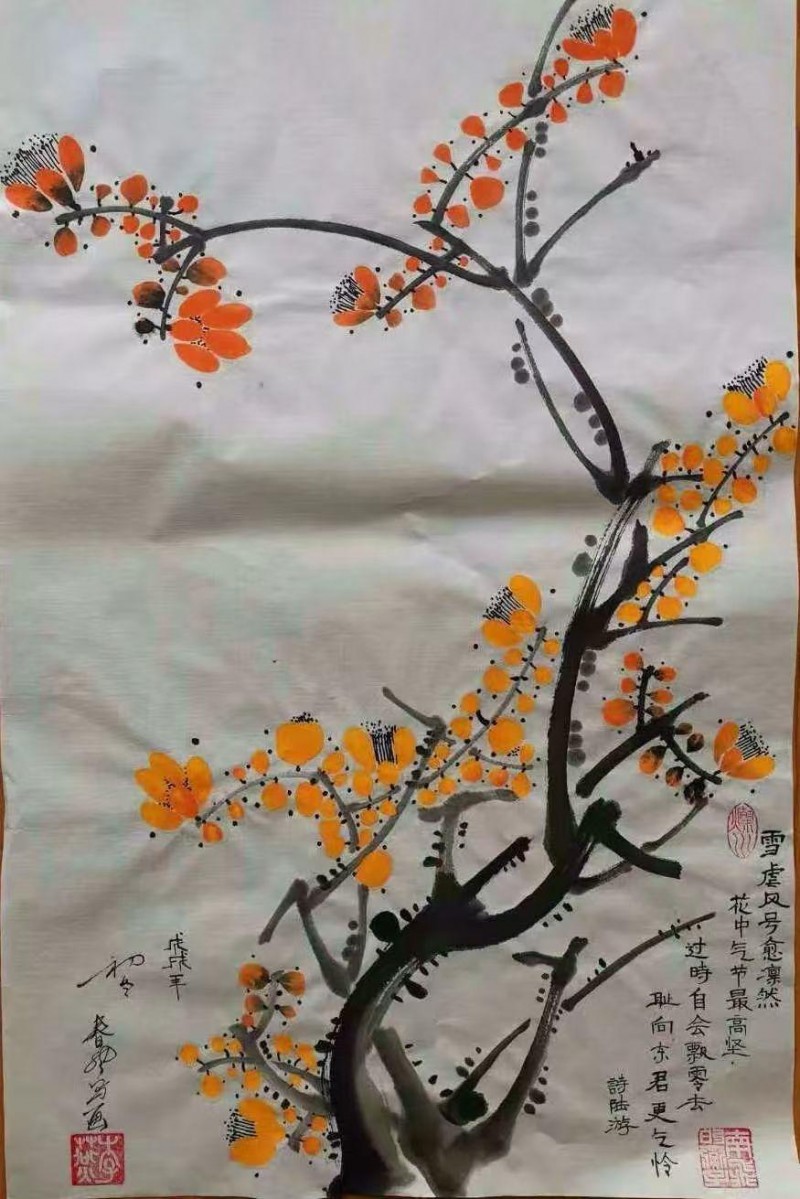 雪虐风号愈凛然
花中气节最高坚
过時自会飘零去
耻向东君更乞怜
詩陆游
戊戌年
初冬
春风写画